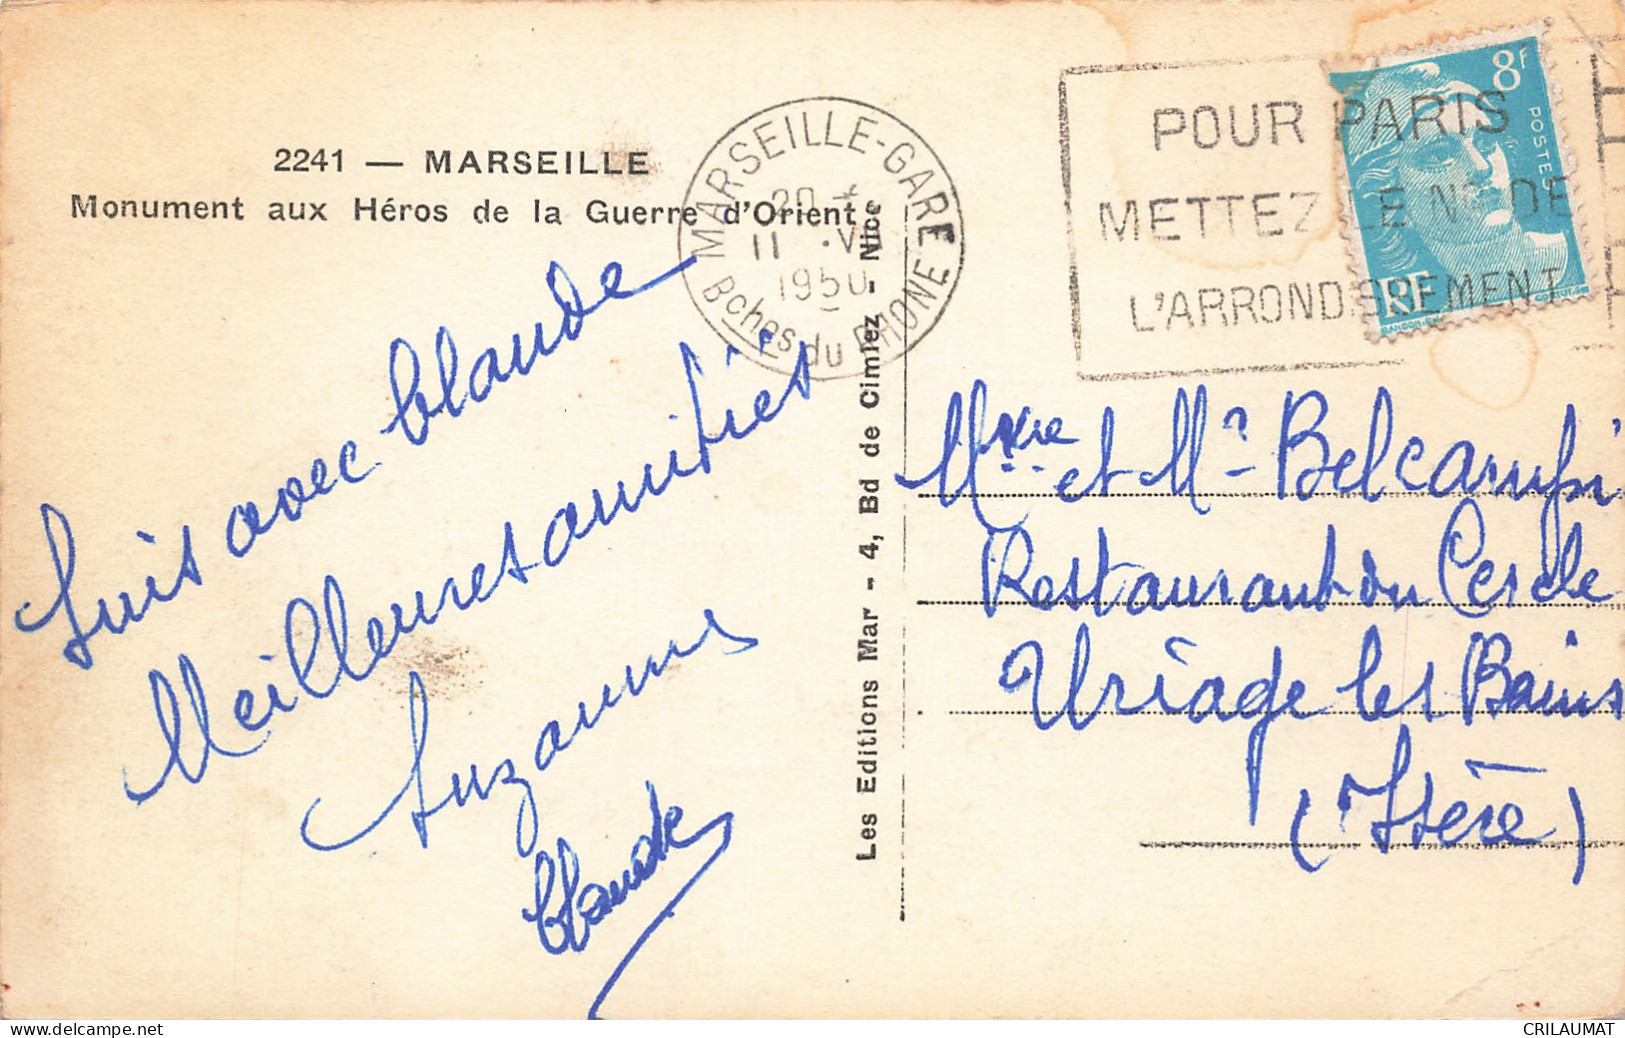 2241 — MARSEILLE
Monument aux Héros de la Guerre d'Orient
Suis avec Claude
Meilleures amitiés
Suzanne
Claude
Les Editions Mar - 4, Bd de Cimiez - Nice
MARSEILLE-GARE
20
11 · V
1950
Bches du RHONE
POUR PARIS
METTEZ LE No DE
L'ARRONDISSEMENT
8F
POSTES
RF
GANDON
Mme et Mr Belcampi
Restaurant du Cercle
Uriage les Bains
(Isère)
CRILAUMAT